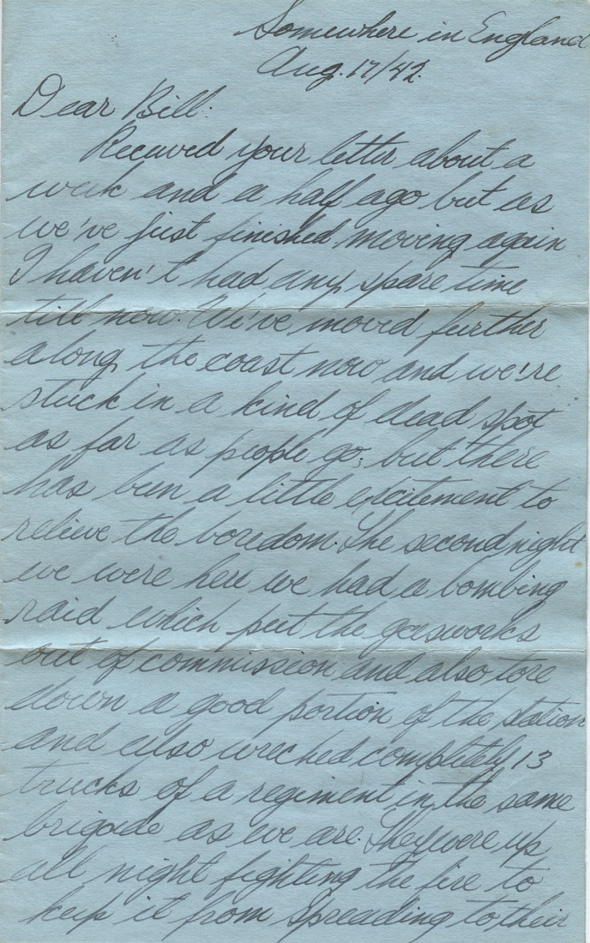 Somewhere in England
Aug. 17/42.
Dear Bill:
Received your letter about a
week and a half ago but as
we've just finished moving again
I haven't had any spare time
till now. We've moved further
along the coast now and we're
stuck in a kind of dead spot
as far as people go; but there
has been a little excitement to
relieve the boredom. The second night
we were here we had a bombing
raid which put the gasworks
out of commission and also tore
down a good portion of the station
and also wrecked completely 13
trucks of a regiment in the same
brigade as we are. They were up
all night fighting the fire to
keep it from spreading to their